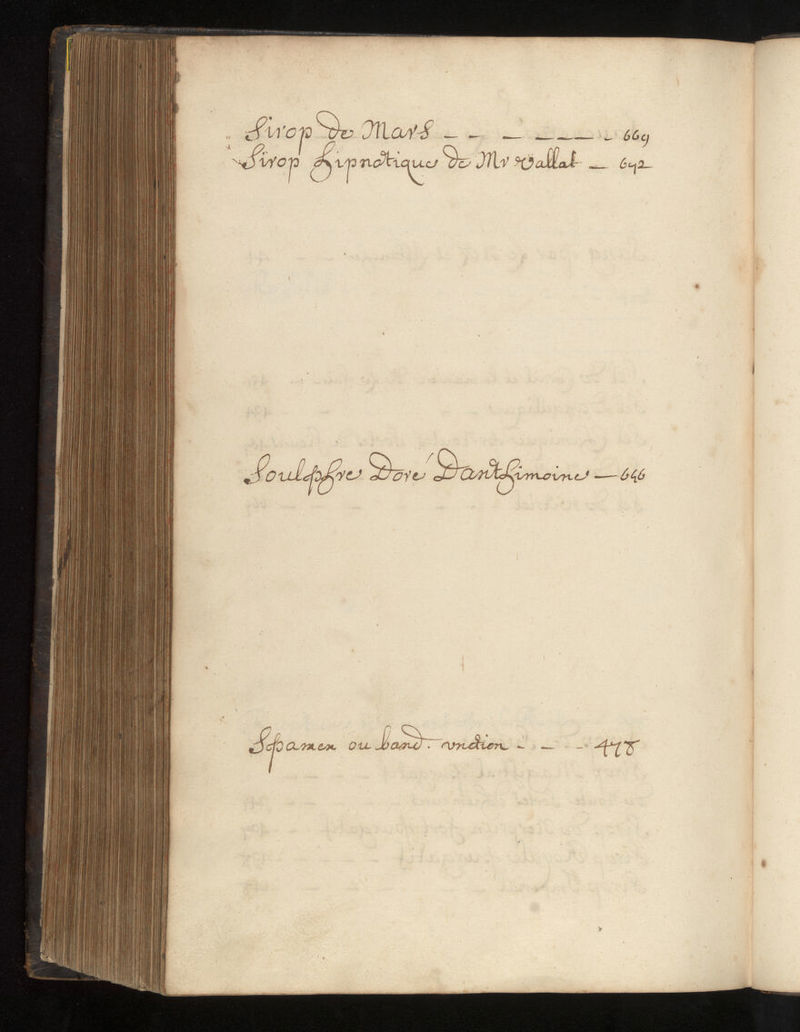 Sirop De Mars — — — — — — 669
Sirop hipnotique De Mr Vallat — 692
Soulphre Doré Danthimoine — 646
Sparen ou band. vnction — — — 478